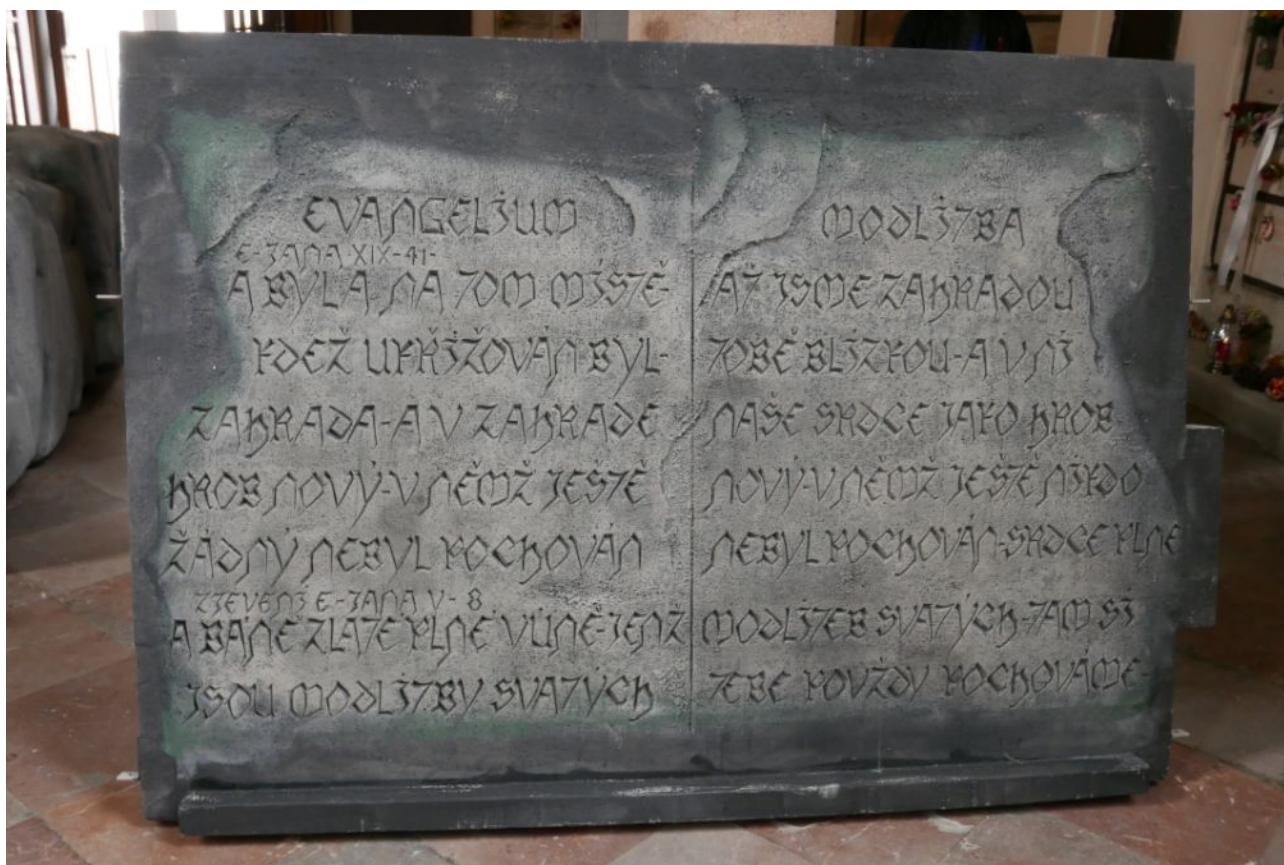 EVANGELIUM
E-JANA XIX-41-
A BYLA NA TOM MÍSTĚ-
KDEŽ UKŘIŽOVÁN BYL-
ZAHRADA-A V ZAHRADE
HROB NOVÝ-V NĚMŽ JEŠTĚ
ŽÁDNÝ NEBYL POCHOVÁN
ZJEVENI E-JANA V-8
A BÁNĚ ZLATE PLNÉ VŮNĚ-JENŽ
JSOU MODLITBY SVATÝCH
MODLITBA
AŤ JSME ZAHRADOU
TOBĚ BLÍZKOU-A V NÍ
NAŠE SRDCE JAKO HROB
NOVÝ-V NĚMŽ JEŠTĚ NIKDO
NEBYL POCHOVÁN-SRDCE PLNÉ
MODLITEB SVATÝCH-TAM SI
TEBE POVŽDY POCHOVÁME-